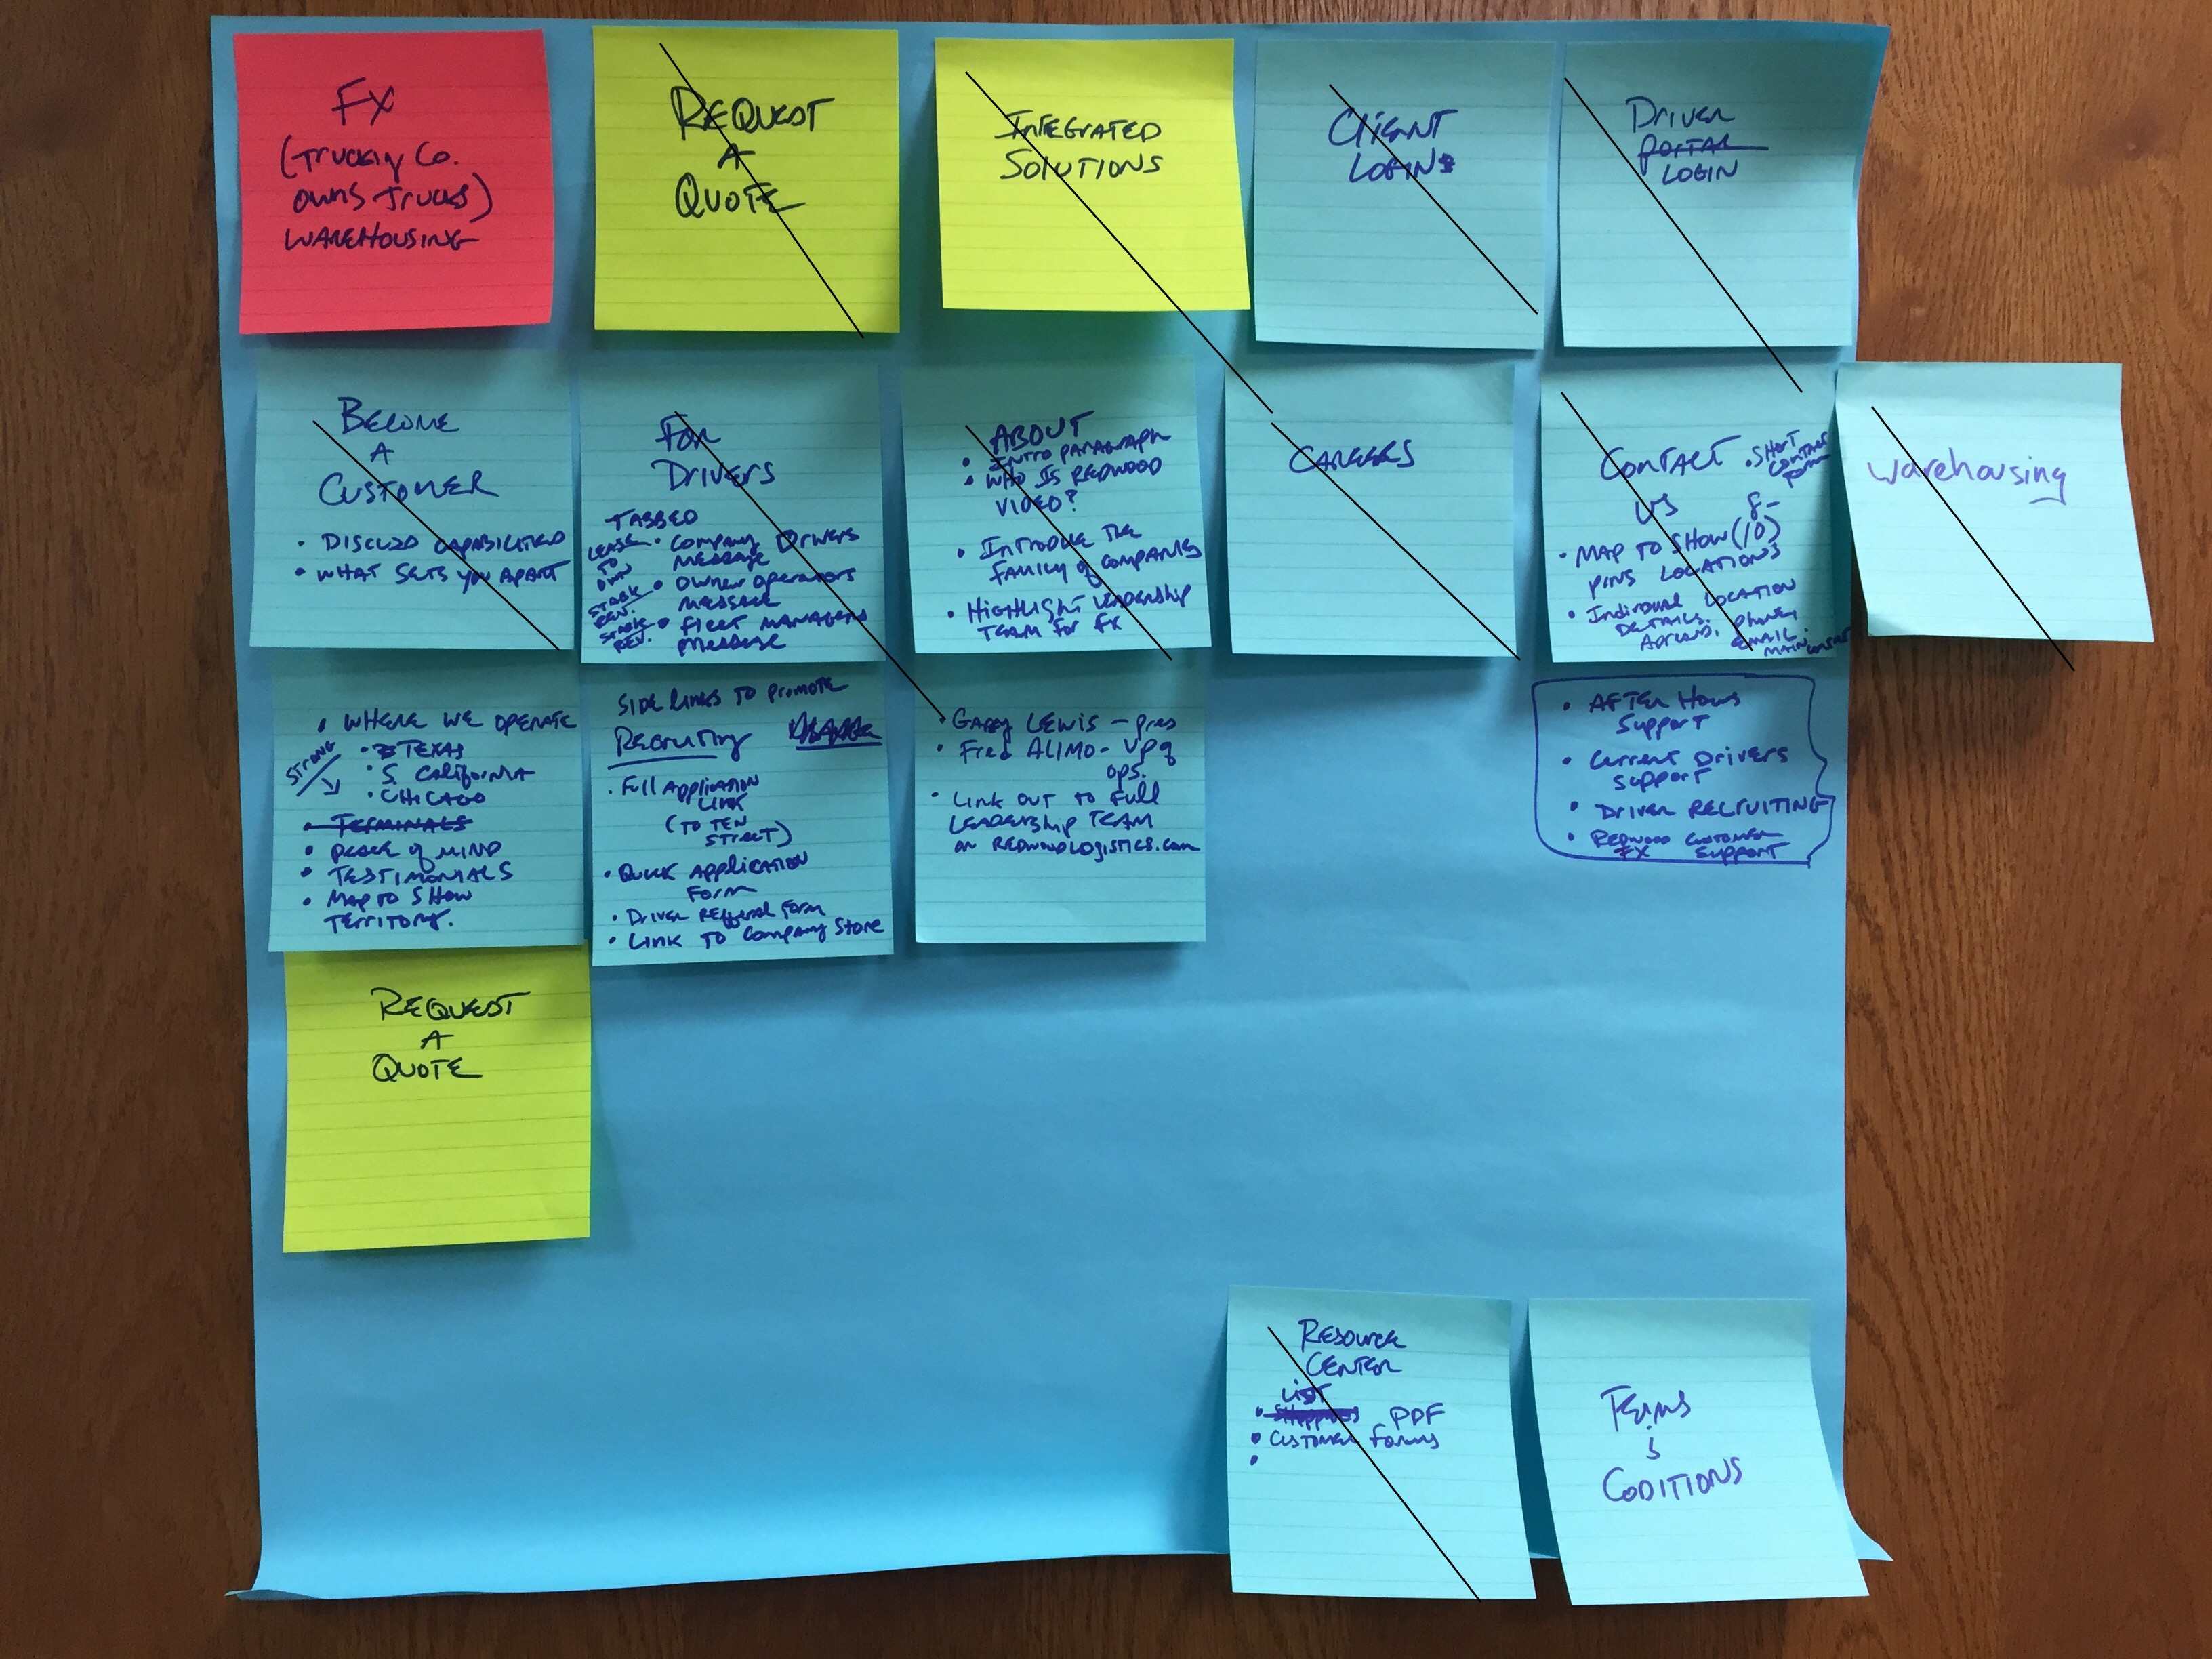 FX
(Trucking Co.
owns Trucks)
WAREHOUSING
REQUEST
A
QUOTE
INTEGRATED
SOLUTIONS
Client
LOGIN
Driver
PORTAL
LOGIN
BECOME
A
CUSTOMER
• DISCUSS CAPABILITIES
• WHAT SETS YOU APART
For
Drivers
TABBED
LEASE TO OWN
• Company Drivers
Message
• Owner operators
Message
• Fleet Managers
Message
STABLE REV.
STABLE REV.
ABOUT
• INTRO PARAGRAPH
• WHO IS REDWOOD
VIDEO?
• Introduce the
family of companies
• Highlight Leadership
TEAM for FX
CAREERS
CONTACT
US
• SHORT
CONTACT
Form
• MAP TO SHOW (10)
PINS LOCATIONS
• Individual LOCATION
DETAILS.
Address, phone,
EMAIL.
MAIN
warehousing
• WHERE WE OPERATE
STRONG
• TEXAS
• S. CALIFORNIA
• CHICAGO
• TERMINALS
• PEACE of MIND
• TESTIMONIALS
• MAP TO SHOW
TERRITORY.
SIDE LINKS TO PROMOTE
Recruiting
• Full Application
LINK
(TO TEN
STREET)
• Quick Application
Form
• Driver Referral Form
• LINK TO Company Store
• Gary LEWIS - pres
• Fred ALIMO - VP of
ops.
• LINK OUT TO Full
LEADERSHIP TEAM
on REDWOODLOGISTICS.com
• AFTER Hours
Support
• Current Drivers
Support
• DRIVER RECRUITING
• REDWOOD CUSTOMER
FX Support
REQUEST
A
QUOTE
Resource
CENTER
LIST
• Shippers PDF
• CUSTOMER Forms
•
Terms
&
CODITIONS